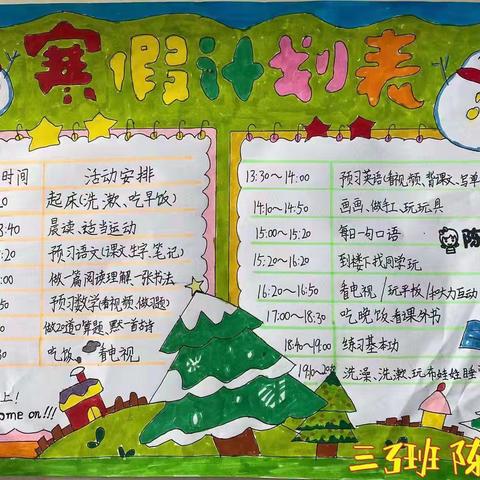 寒假计划表
时间 活动安排
起床(洗、漱、吃早饭)
:40 晨读、适当运动
预习语文(课文、生字、笔记)
:00 做一篇阅读理解、一张书法
预习数学(看视频、做题)
做20道口算题、默一首古诗
:30 吃饭、看电视
上!
ome on!!!
13:30~14:00 预习英语(看视频、背课文、写单
14:10~14:50 画画、做手工、玩玩具
15:00~15:20 每日一句口语
陈
15:20~16:20 到楼下找同学玩
16:20~16:50 看电视/玩平板/和大力互动
17:00~18:30 吃晚饭、看课外书
18:40~19:00 练习基本功
19:00~20 洗澡、洗漱、玩布娃娃、睡
三3班 陈